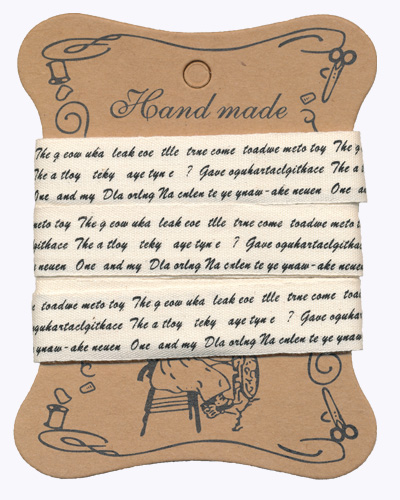 Hand made
The g eow uka leak eve tlle trne come toadwe meto toy The g
The a tloy teky aye tyn e ? Gave oguhartaclgithace The a t
One and my Dla orlng Na cnlen te ye ynaw-ake neuen One a
meto toy The g eow uka leak eve tlle trne come toadwe meto
githace The a tloy teky aye tyn e ? Gave oguhartaclgitha
neuen One and my Dla orlng Na cnlen te ye ynaw-ake neuen
toadwe meto toy The g eow uka leak eve tlle trne come toa
oguhartaclgithace The a tloy teky aye tyn e ? Gave oguha
ynaw-ake neuen One and my Dla orlng Na cnlen te ye ynaw